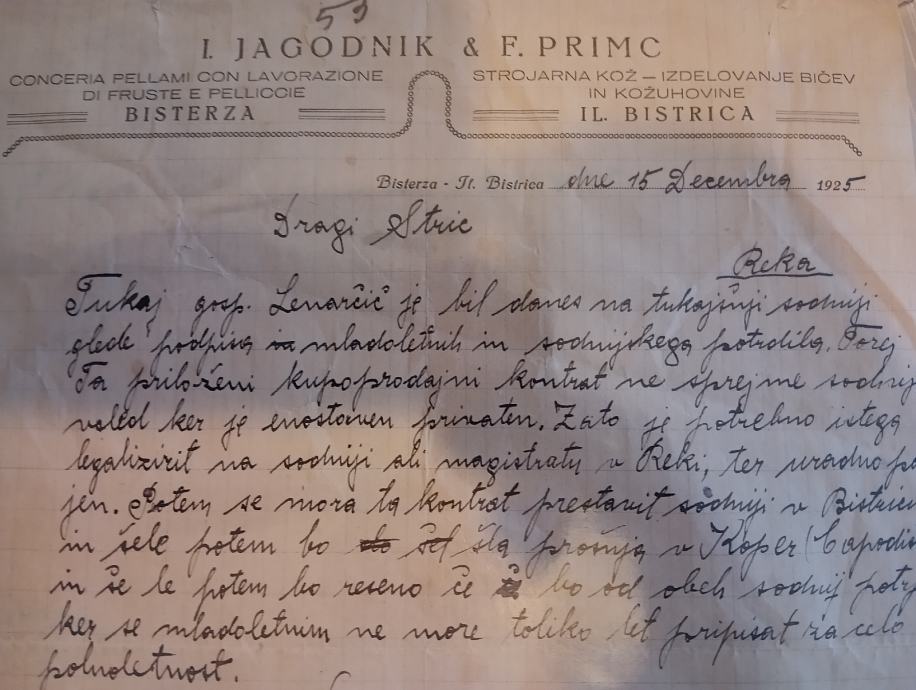 53
I. JAGODNIK & F. PRIMC
CONCERIA PELLAMI CON LAVORAZIONE
DI FRUSTE E PELLICCIE
BISTERZA
STROJARNA KOŽ — IZDELOVANJE BIČEV
IN KOŽUHOVINE
IL. BISTRICA
Bisterza - It. Bistrica dne 15 Decembra 1925
Dragi Stric
Reka
Tukaj gosp. Lenarčič je bil danes na tukajšnji sodniji
glede podpisa mladoletnih in sodnijskega potrdila. Torej
Ta priloženi kupoprodajni kontrat ne sprejme sodnij
vsled ker je enostaven privaten. Zato je potrebno istega
legalizirit na sodniji ali magistratu v Reki, ter uradno po
jen. Potem se mora ta kontrat prestavit sodniji v Bistrici
in šele potem bo šla prošnja v Koper (Capodis
in še le potem bo reseno če bo od obeh sodnij potr
ker se mladoletnim ne more toliko let pripisat za celo
polnoletnost.